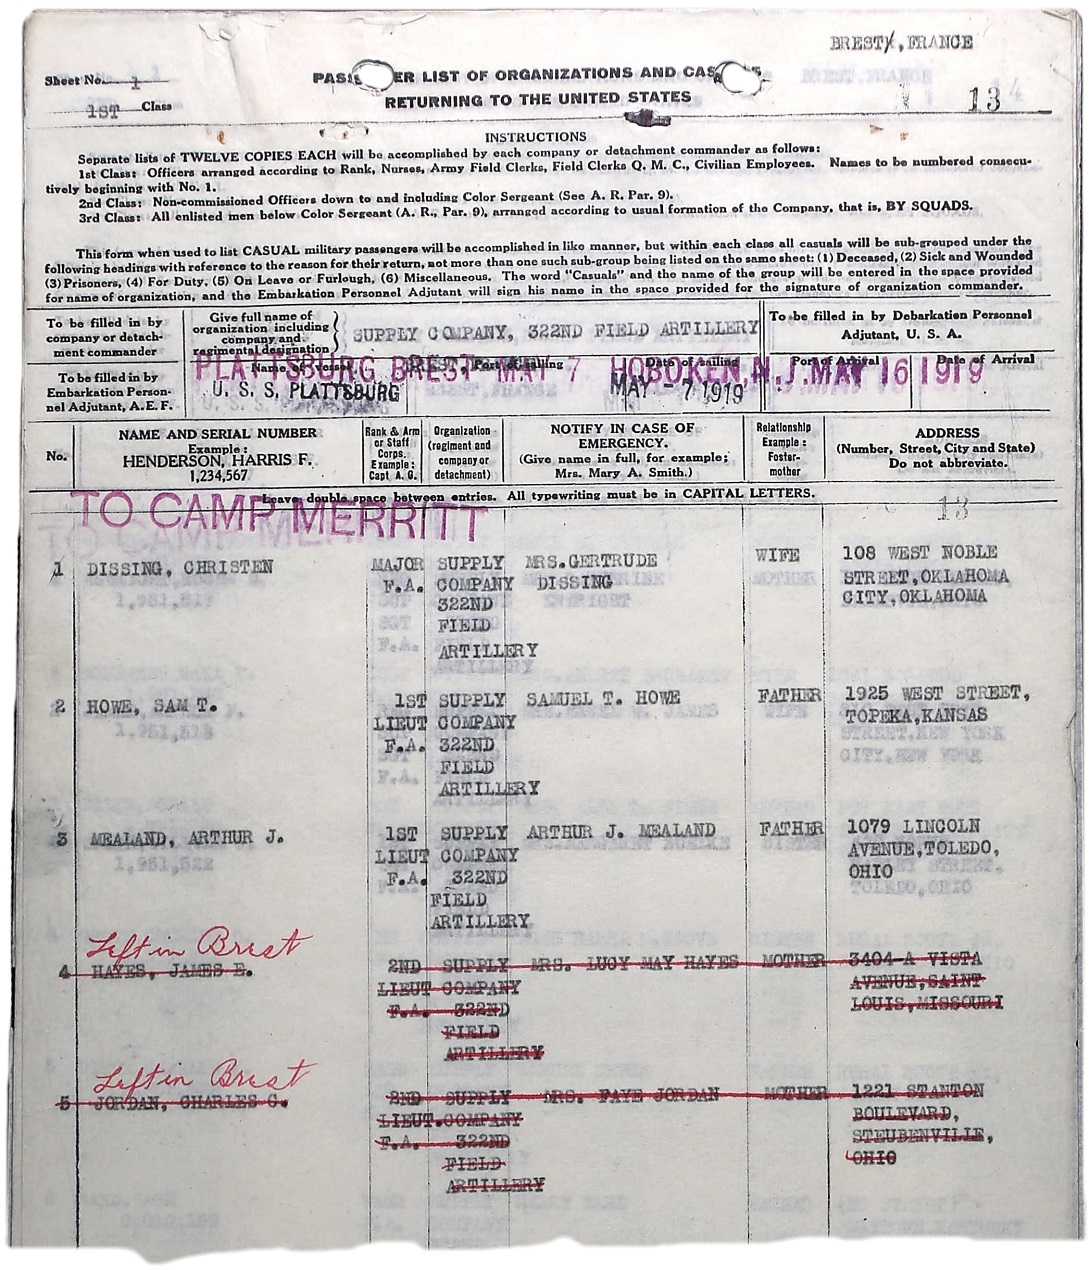 BREST, FRANCE
Sheet No. 1
PASSENGER LIST OF ORGANIZATIONS AND CASUALS
1ST Class
RETURNING TO THE UNITED STATES
13
INSTRUCTIONS
Separate lists of TWELVE COPIES EACH will be accomplished by each company or detachment commander as follows:
1st Class: Officers arranged according to Rank, Nurses, Army Field Clerks, Field Clerks Q. M. C., Civilian Employees. Names to be numbered consecu-
tively beginning with No. 1.
2nd Class: Non-commissioned Officers down to and including Color Sergeant (See A. R. Par. 9).
3rd Class: All enlisted men below Color Sergeant (A. R., Par. 9), arranged according to usual formation of the Company, that is, BY SQUADS.
This form when used to list CASUAL military passengers will be accomplished in like manner, but within each class all casuals will be sub-grouped under the
following headings with reference to the reason for their return, not more than one such sub-group being listed on the same sheet: (1) Deceased, (2) Sick and Wounded
(3) Prisoners, (4) For Duty, (5) On Leave or Furlough, (6) Miscellaneous. The word "Casuals" and the name of the group will be entered in the space provided
for name of organization, and the Embarkation Personnel Adjutant will sign his name in the space provided for the signature of organization commander.
To be filled in by
company or detach-
ment commander
Give full name of
organization including
company and
regimental designation
SUPPLY COMPANY, 322ND FIELD ARTILLERY
To be filled in by Debarkation Personnel
Adjutant, U. S. A.
To be filled in by
Embarkation Person-
nel Adjutant, A.E.F.
Name of Vessel
Port of Sailing
Date of sailing
Port of Arrival
Date of Arrival
PLATTSBURG BREST MAY 7 HOBOKEN, N.J. MAY 16 1919
U. S. S. PLATTSBURG
MAY -7 1919
No.
NAME AND SERIAL NUMBER
Example:
HENDERSON, HARRIS F.
1,234,567
Rank & Arm
or Staff
Corps.
Example:
Capt A. G.
Organization
(regiment and
company or
detachment)
NOTIFY IN CASE OF
EMERGENCY.
(Give name in full, for example;
Mrs. Mary A. Smith.)
Relationship
Example:
Foster-
mother
ADDRESS
(Number, Street, City and State)
Do not abbreviate.
Leave double space between entries. All typewriting must be in CAPITAL LETTERS.
TO CAMP MERRITT
13
1 DISSING, CHRISTEN MAJOR SUPPLY MRS.GERTRUDE WIFE 108 WEST NOBLE
F.A. COMPANY DISSING STREET,OKLAHOMA
322ND CITY,OKLAHOMA
FIELD
ARTILLERY
2 HOWE, SAM T. 1ST SUPPLY SAMUEL T. HOWE FATHER 1925 WEST STREET,
LIEUT COMPANY TOPEKA,KANSAS
F.A. 322ND
FIELD
ARTILLERY
3 MEALAND, ARTHUR J. 1ST SUPPLY ARTHUR J. MEALAND FATHER 1079 LINCOLN
LIEUT COMPANY AVENUE,TOLEDO,
F.A. 322ND OHIO
FIELD
ARTILLERY
Left in Brest
4 HAYES, JAMES E. 2ND SUPPLY MRS. LUCY MAY HAYES MOTHER 3404-A VISTA
LIEUT COMPANY AVENUE,SAINT
F.A. 322ND LOUIS,MISSOURI
FIELD
ARTILLERY
Left in Brest
5 JORDAN, CHARLES C. 2ND SUPPLY MRS. FAYE JORDAN MOTHER 1221 STANTON
LIEUT.COMPANY BOULEVARD,
F.A. 322ND STEUBENVILLE,
FIELD OHIO
ARTILLERY